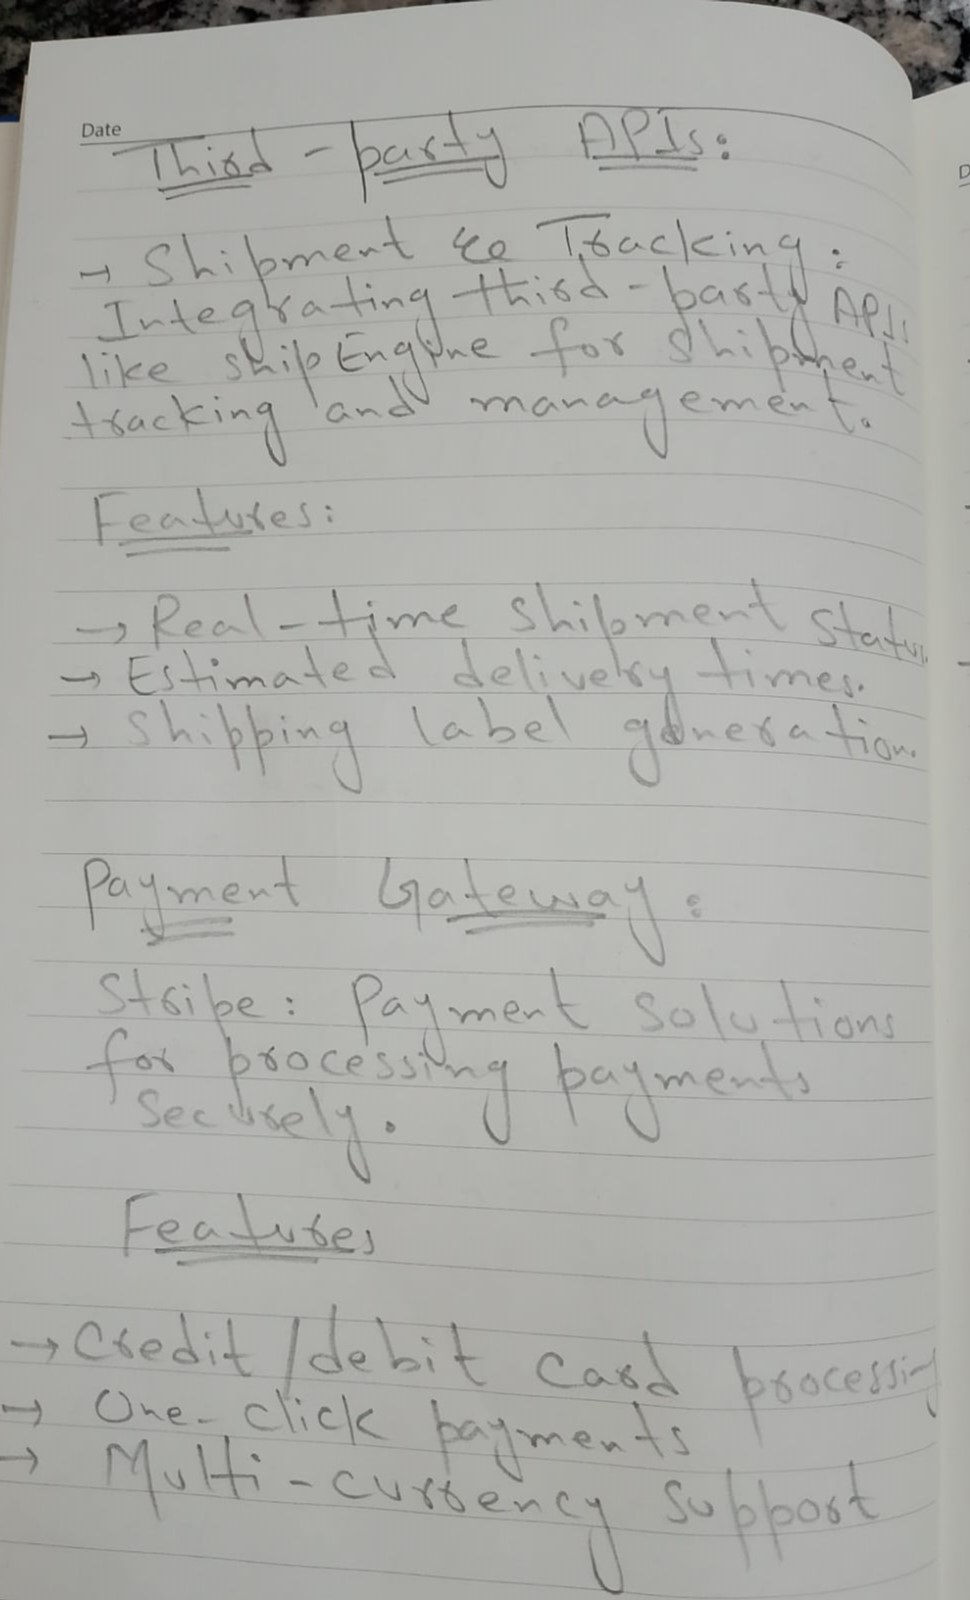 Date
Third-party APIs:
→ Shipment & Tracking:
Integrating third-party APIs
like shipEngine for shipment
tracking and management.
Features:
→ Real-time shipment status.
→ Estimated delivery times.
→ Shipping label generation.
Payment Gateway:
Stripe: Payment solutions
for processing payments
securely.
Features
→ Credit/debit card processing
→ One-click payments
→ Multi-currency support